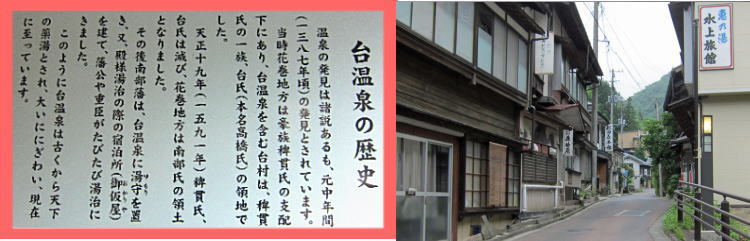 台温泉の歴史
温泉の発見は諸説あるも、元中年間
(一三八七年頃)の発見とされています。
当時花巻地方は豪族稗貫氏の支配
下にあり、台温泉を含む台村は、稗貫
氏の一族、台氏(本名高橋氏)の領地で
した。
天正十九年(一五九一年)稗貫氏、
台氏は滅び、花巻地方は南部氏の領土
となりました。
その後南部藩は、台温泉に湯守を置
き、又、殿様湯治の際の宿泊所(御仮屋)
を建て、藩公や重臣がたびたび湯治に
きました。
このように台温泉は古くから天下
の薬湯とされ、大いににぎわい、現在
に至っています。
亀の湯
水上旅館